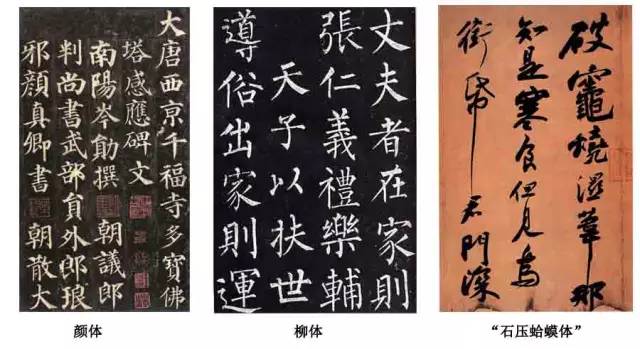 大唐西京千福寺多寶佛
塔感應碑文
南陽岑勛撰 朝議郎
判尚書武部員外郎琅
邪顏真卿書 朝散大
顏体
丈夫者在家則
張仁義禮樂輔
天子以扶世
導俗出家則運
柳体
破竈燒濕葦那
知是寒食但見烏
銜帋 君門深
“石压蛤蟆体”